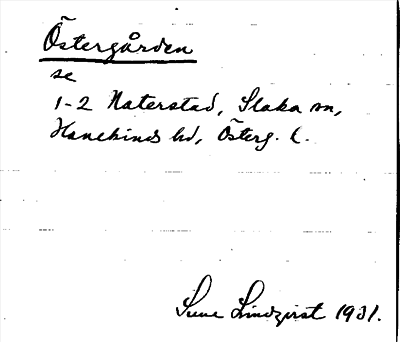 Östergården
se
1-2 Naterstad, Slaka sn,
Hanekinds hd, Österg. l.
Sune Lindqvist 1931.